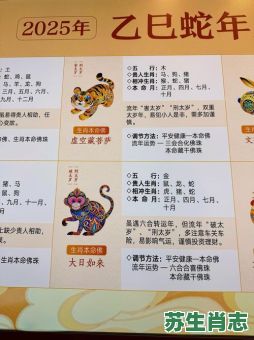 2025年 乙巳蛇年
土
蛇、鸡、鼠
龙、羊、牛
正月、三月、五月、
九月、十二月
生肖本命佛
虚空藏菩萨
五 行: 木
贵人生肖: 马、狗、猪
相冲生肖: 猴、蛇
吉 月: 正月、四月、七月、
十月
流年“害太岁”“刑太岁”,双重
太岁年,易犯小人是非,需多加谨
慎。
调节方法: 平安健康—本命佛
流年运势 — 三会合化佛珠
本命藏千佛珠
猪、马
鼠、狗
九月、十一月、
生肖本命佛
大日如来
五 行: 金
贵人生肖: 鼠、龙、蛇
相冲生肖: 虎、猪
吉 月: 正月、二月、三月、
七月、十月
虽遇六合转运年,但流年“破太
岁”、“刑太岁”,多注意车关车
险,易影响气运,谨慎投资理财。
调节方法: 平安健康—本命佛
流年运势 — 六合合喜佛珠
本命藏干佛珠
苏生肖志